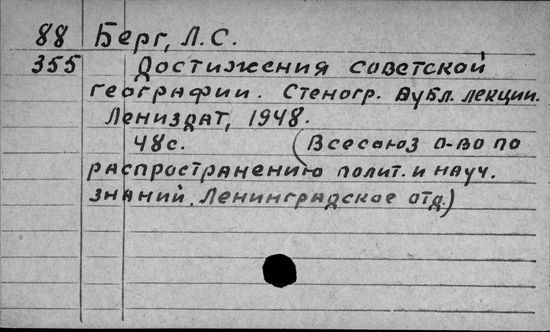 88 Берг, Л.С.
355 Достижения советской
географии. Стеногр. публ. лекции.
Лениздат, 1948.
48с. (Всесоюз о-во по
распространению полит. и науч.
знаний. Ленинградское отд.)